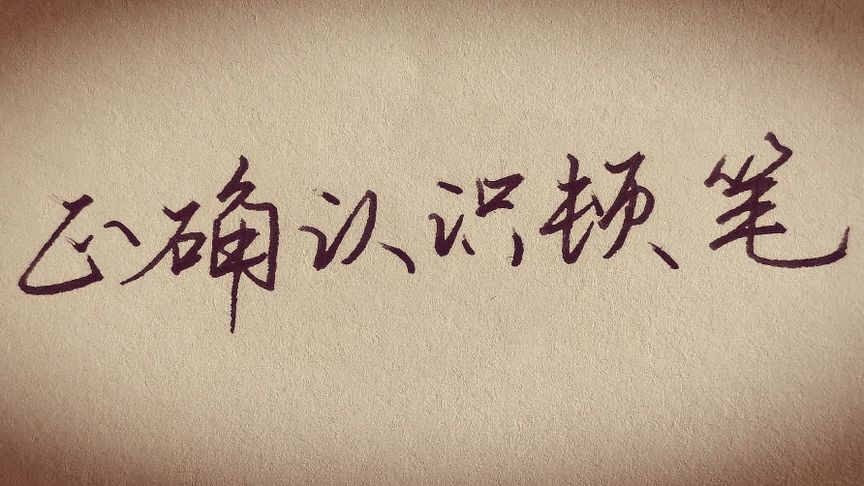 正确认识顿笔